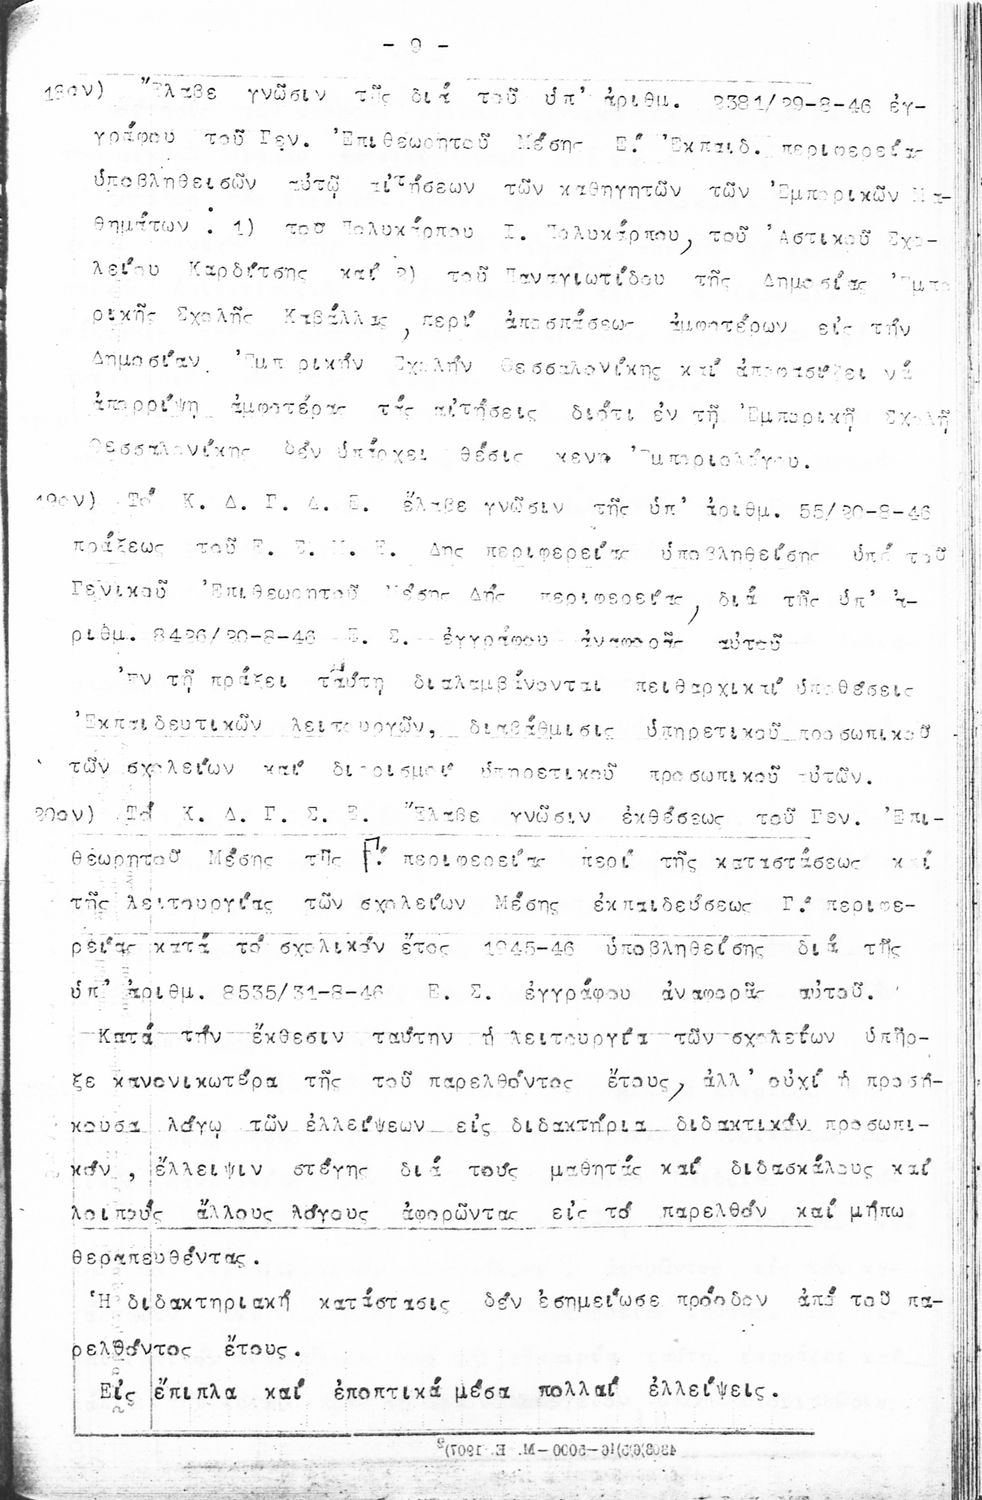 - 9 -
18ον) Ἔλαβε γνῶσιν τῆς διά τοῦ ὑπ' ἀριθμ. 2381/29-8-46 ἐγ-
γράφου τοῦ Γεν. Ἐπιθεωρητοῦ Μέσης Ε.' Ἐκπαιδ. περιφερείας
ὑποβληθεισῶν αὐτῷ αἰτήσεων τῶν καθηγητῶν τῶν Ἐμπορικῶν Μα-
θημάτων : 1) του Πολυκάρπου Ι. Πολυκάρπου, τοῦ Ἀστικοῦ Σχο-
λείου Καρδίτσης καί 2) τοῦ Παναγιωτίδου τῆς Δημοσίας Ἐμπο
ρικῆς Σχολῆς Καβάλλας, περί ἀποσπάσεως ἀμφοτέρων εἰς τήν
Δημοσίαν Ἐμπ ρικήν Σχολήν Θεσσαλονίκης καί ἀποφασίζει νά
ἀπορρίψη ἀμφοτέρας τάς αἰτήσεις διότι ἐν τῇ Ἐμπορικῇ Σχολῇ
Θεσσαλονίκης δέν ὑπάρχει θέσις κενη Ἐμποριολόγου.
19ον) Τό Κ. Δ. Γ. Δ. Ε. ἔλαβε γνῶσιν τῆς ὑπ' ἀριθμ. 55/20-8-46
πράξεως τοῦ Ε. Σ. Μ. Ε. Δης περιφερείας ὑποβληθείσης ὑπό τοῦ
Γενικοῦ Ἐπιθεωρητοῦ Μέσης Δής περιφερείας, διά τῆς ὑπ' ἀ-
ριθμ. 8426/20-8-46 Ε. Σ. ἐγγράφου ἀναφορᾶς αὐτοῦ
Ἐν τῇ πράξει ταύτη διαλαμβάνονται πειθαρχικαί ὑποθέσεις
Ἐκπαιδευτικῶν λειτουργῶν, διαβάθμισις ὑπηρετικοῦ προσωπικοῦ
τῶν σχολείων καί διορισμοί ὑπηρετικοῦ προσωπικοῦ αὐτῶν.
20ον) Τό Κ. Δ. Γ. Σ. Ε. Ἔλαβε γνῶσιν ἐκθέσεως τοῦ Γεν. Ἐπι-
θεωρητοῦ Μέσης τῆς Γ.' περιφερείας περί τῆς καταστάσεως καί
τῆς λειτουργίας τῶν σχολείων Μέσης ἐκπαιδεύσεως Γ.' περιφε-
ρείας κατά τό σχολικόν ἔτος 1945-46 ὑποβληθείσης διά τῆς
ὑπ' ἀριθμ. 8535/31-8-46 Ε. Σ. ἐγγράφου ἀναφορᾶς αὐτοῦ.
Κατά τήν ἔκθεσιν ταύτην ἡ λειτουργία τῶν σχολείων ὑπῆρ-
ξε κανονικωτέρα τῆς τοῦ παρελθόντος ἔτους, ἀλλ' οὐχί ἡ προσή-
κουσα λόγῳ τῶν ἐλλείψεων εἰς διδακτήρια διδακτικόν προσωπι-
κόν, ἔλλειψιν στέγης διά τούς μαθητάς καί διδασκάλους καί
λοιπούς ἄλλους λόγους ἀφορῶντας εἰς τό παρελθόν καί μήπω
θεραπευθέντας.
Ἡ διδακτηριακή κατάστασις δέν ἐσημείωσε πρόοδον ἀπό τοῦ πα-
ρελθόντος ἔτους.
Εἰς ἔπιπλα καί ἐποπτικά μέσα πολλαί ἐλλείψεις.